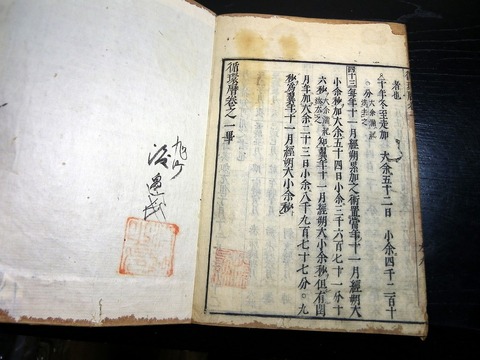 循環曆卷之
者也
十年冬至定加 大余五十二日 小余四千二百十
分 大余満紀 法去之
四十三 每年十一月經朔累加之術置當年十一月經朔大
小余秒加大余五十四日小余三千六百七十一分十
六秒 大余満紀 法去之 知翼年十一月經朔大小余秒但有閏
月年加大余二十三日小余八千九百七十七分〇九
秒爲翼年十一月經朔大小余秒
循環曆卷之一畢